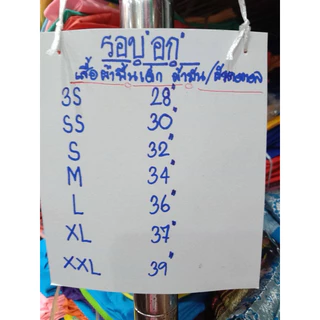 รอบอก
เสื้อผ้าพื้นเด็ก ผ้าพื้น/
3S 28"
SS 30"
S 32"
M 34"
L 36"
XL 37"
XXL 39"